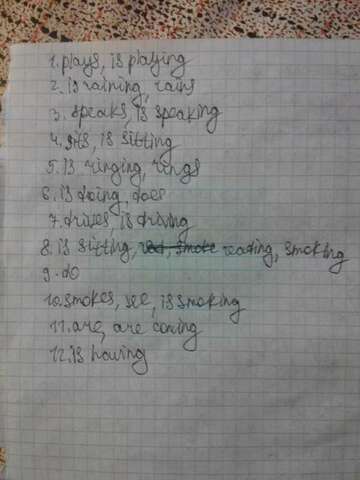 1. plays, is playing
2. is raining, rains
3. speaks, is speaking
4. sits, is sitting
5. is ringing, rings
6. is doing, does
7. drives, is driving
8. is sitting, reading, smoking
9. do
10. smokes, see, is smoking
11. are, are coming
12. is having